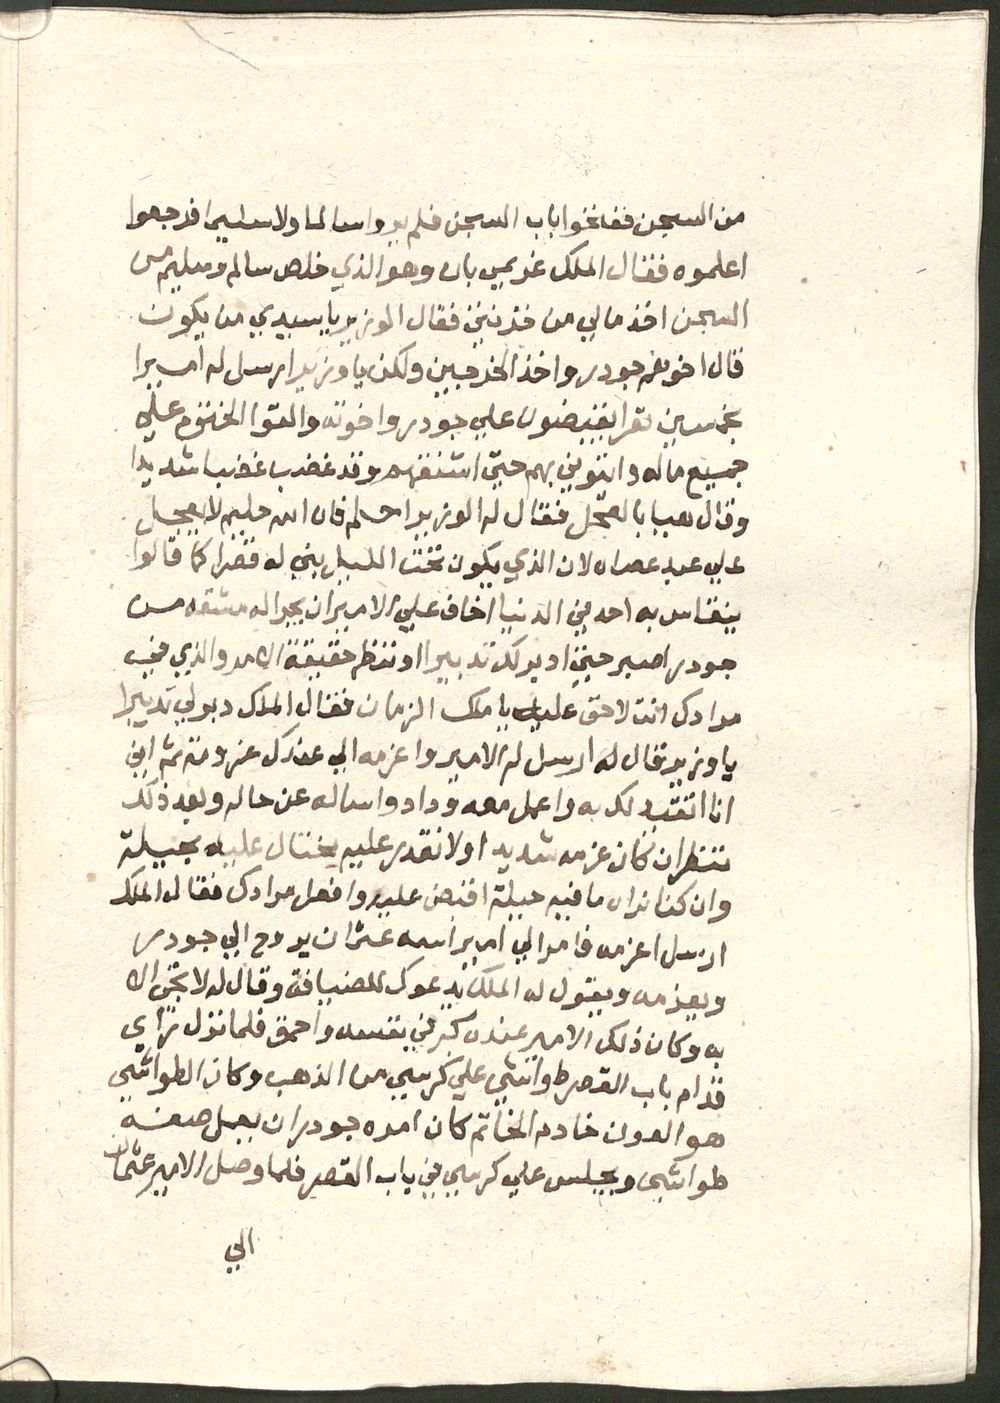 من السجن ففتخوا باب السجن فلم يروا سالما ولا سليما فرجعوا
اعلموه فقال الملك غريمي بان وهو الذي خلص سالم وسليم من
السجن اخذ مالي من خزنتي فقال الوزير يا سيدي من يكون
قال اخوهم جودر واخذ الخرجين ولكن يا وزير ارسل له اميرا
بخمسين نفرا يقبضون علي جودر واخوته والقوا الختوم علي
جميع ماله واتوني بهم حتي اشنقهم وقد غضب غضبا شديدا
وقال هيا بالعجل فقال له الوزير احلم فان الله حليم لا يعجل
علي عبد عصاه لان الذي يكون تحت الليل يبني له قصرا كما قالوا
ينقاس به احد في الدنيا اخاف علي الامير ان يجرا له مشقه من
جودر اصبر حتي ادبر لك تدبيرا او تنظر حقيقة الامر والذي في
مرادك انت لاحق عليه يا ملك الزمان فقال الملك دبر لي تدبيرا
يا وزير قال له ارسل له الامير واعزمه الي عندك عزومة ثم اني
انا اتقيد لك به واعمل معه وداد واساله عن حاله وبعد ذلك
ننظر ان كان عزمه شديد اولا نقدر عليه يحتال عليه بحيلة
وان كنا نراه ما فيه حيلة اقبض عليه وافعل مرادك فقال الملك
ارسل اعزمه فامر الي امير اسمه عثمان يروح الي جودر
ويعزمه ويقول له الملك يدعوك للضيافة وقال له لا تجي الا
به وكان ذلك الامير عنده كبر في نفسه واحمق فلما نزل راي
قدام باب القصر طواشي علي كرسي من الذهب وكان الطواشي
هو العون خادم الخاتم كان امره جودر ان يعمل صفة
طواشي ويجلس علي كرسي في باب القصر فلما وصل الامير عثمان
الي